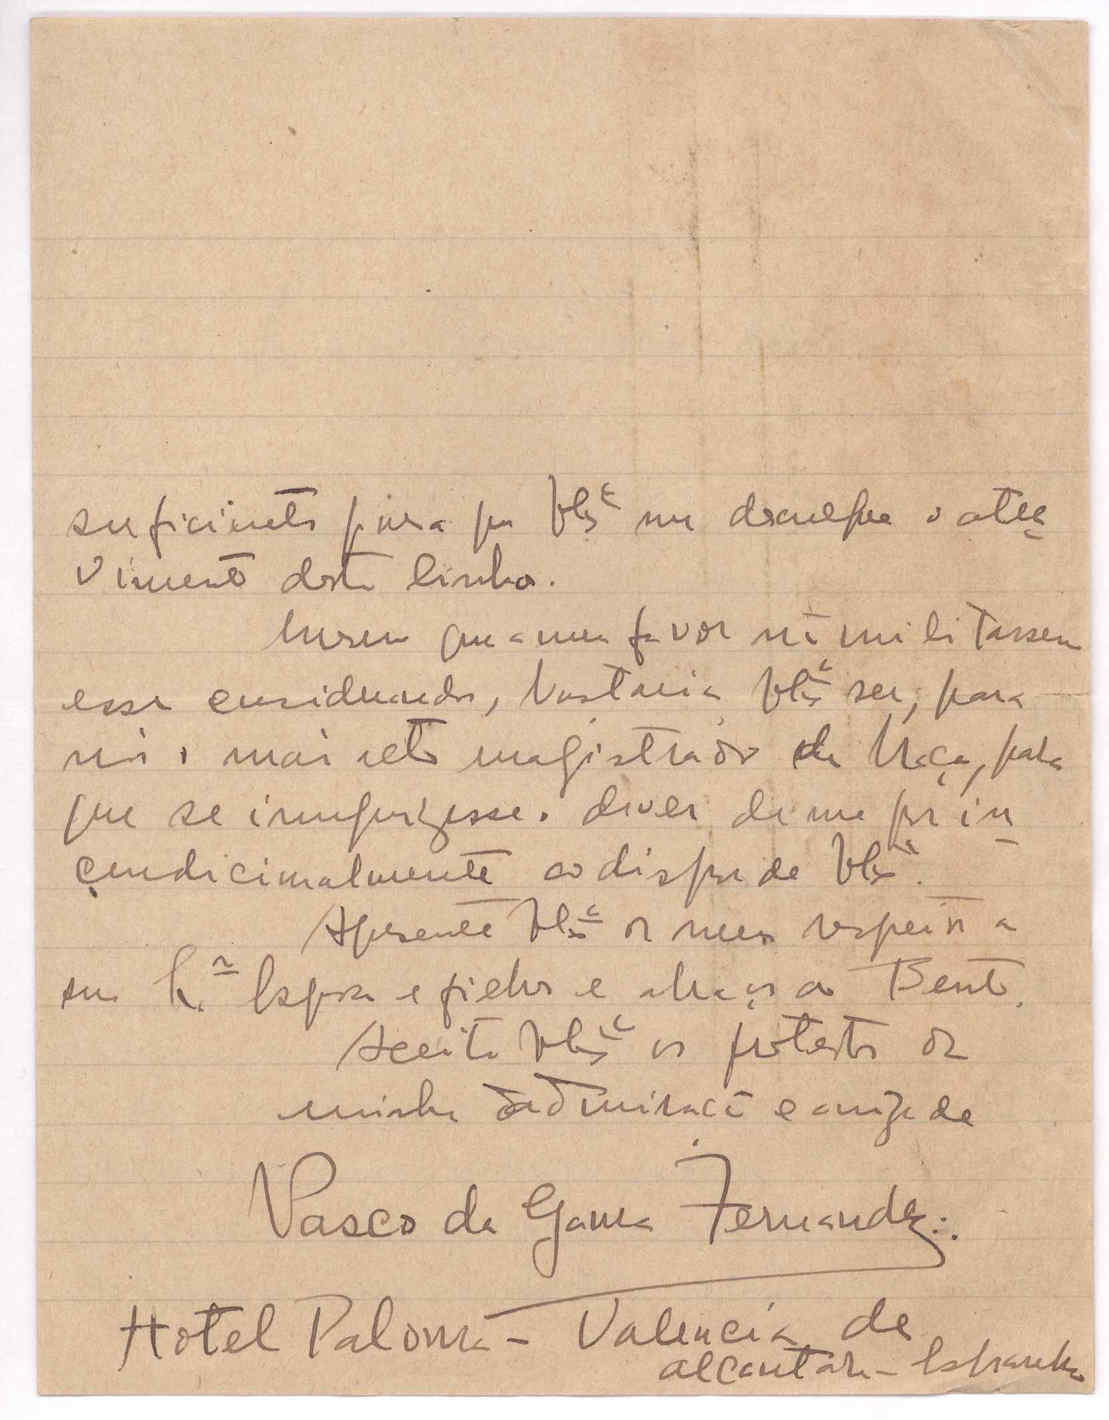 suficiente para q V. Exª me desculpe o atre-
vimento destas linhas.
Mesmo que a meu favor não militassem
esses considerandos, bastaria V. Exª ser, para
mim o mais alto magistrado da Nação, para
que se impuzesse o dever de me pôr in-
condicionalmente ao dispor de V. Exª.
Apresente V. Exª os meus respeitos a
sua Exª Esposa e filhos e abraços ao Bento.
Aceite V. Exª os protestos da
minha admiração e amizade
Vasco da Gama Fernandes
Hotel Paloma - Valencia de
Alcantara - Espanha